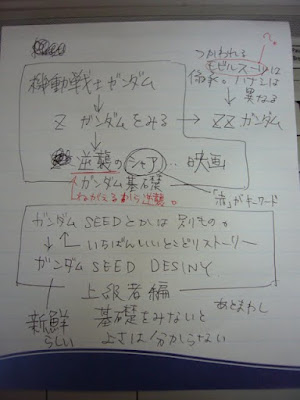 つかわれる
モビルスーツは
?。
機動戦士ガンダム
異なる
Z ガンダムをみる → ZZ ガンダム
逆襲のシャア‥映画
ガンダム基礎礎
ねがえるから逆襲。
「赤」がキーワード
ガンダムSEEDとかは別もの。
いちばんいいとこどりストーリー
ガンダム SEED DESINY
上級者編
あとまわし
新鮮
らしい
基礎をみないと
よさは分からない